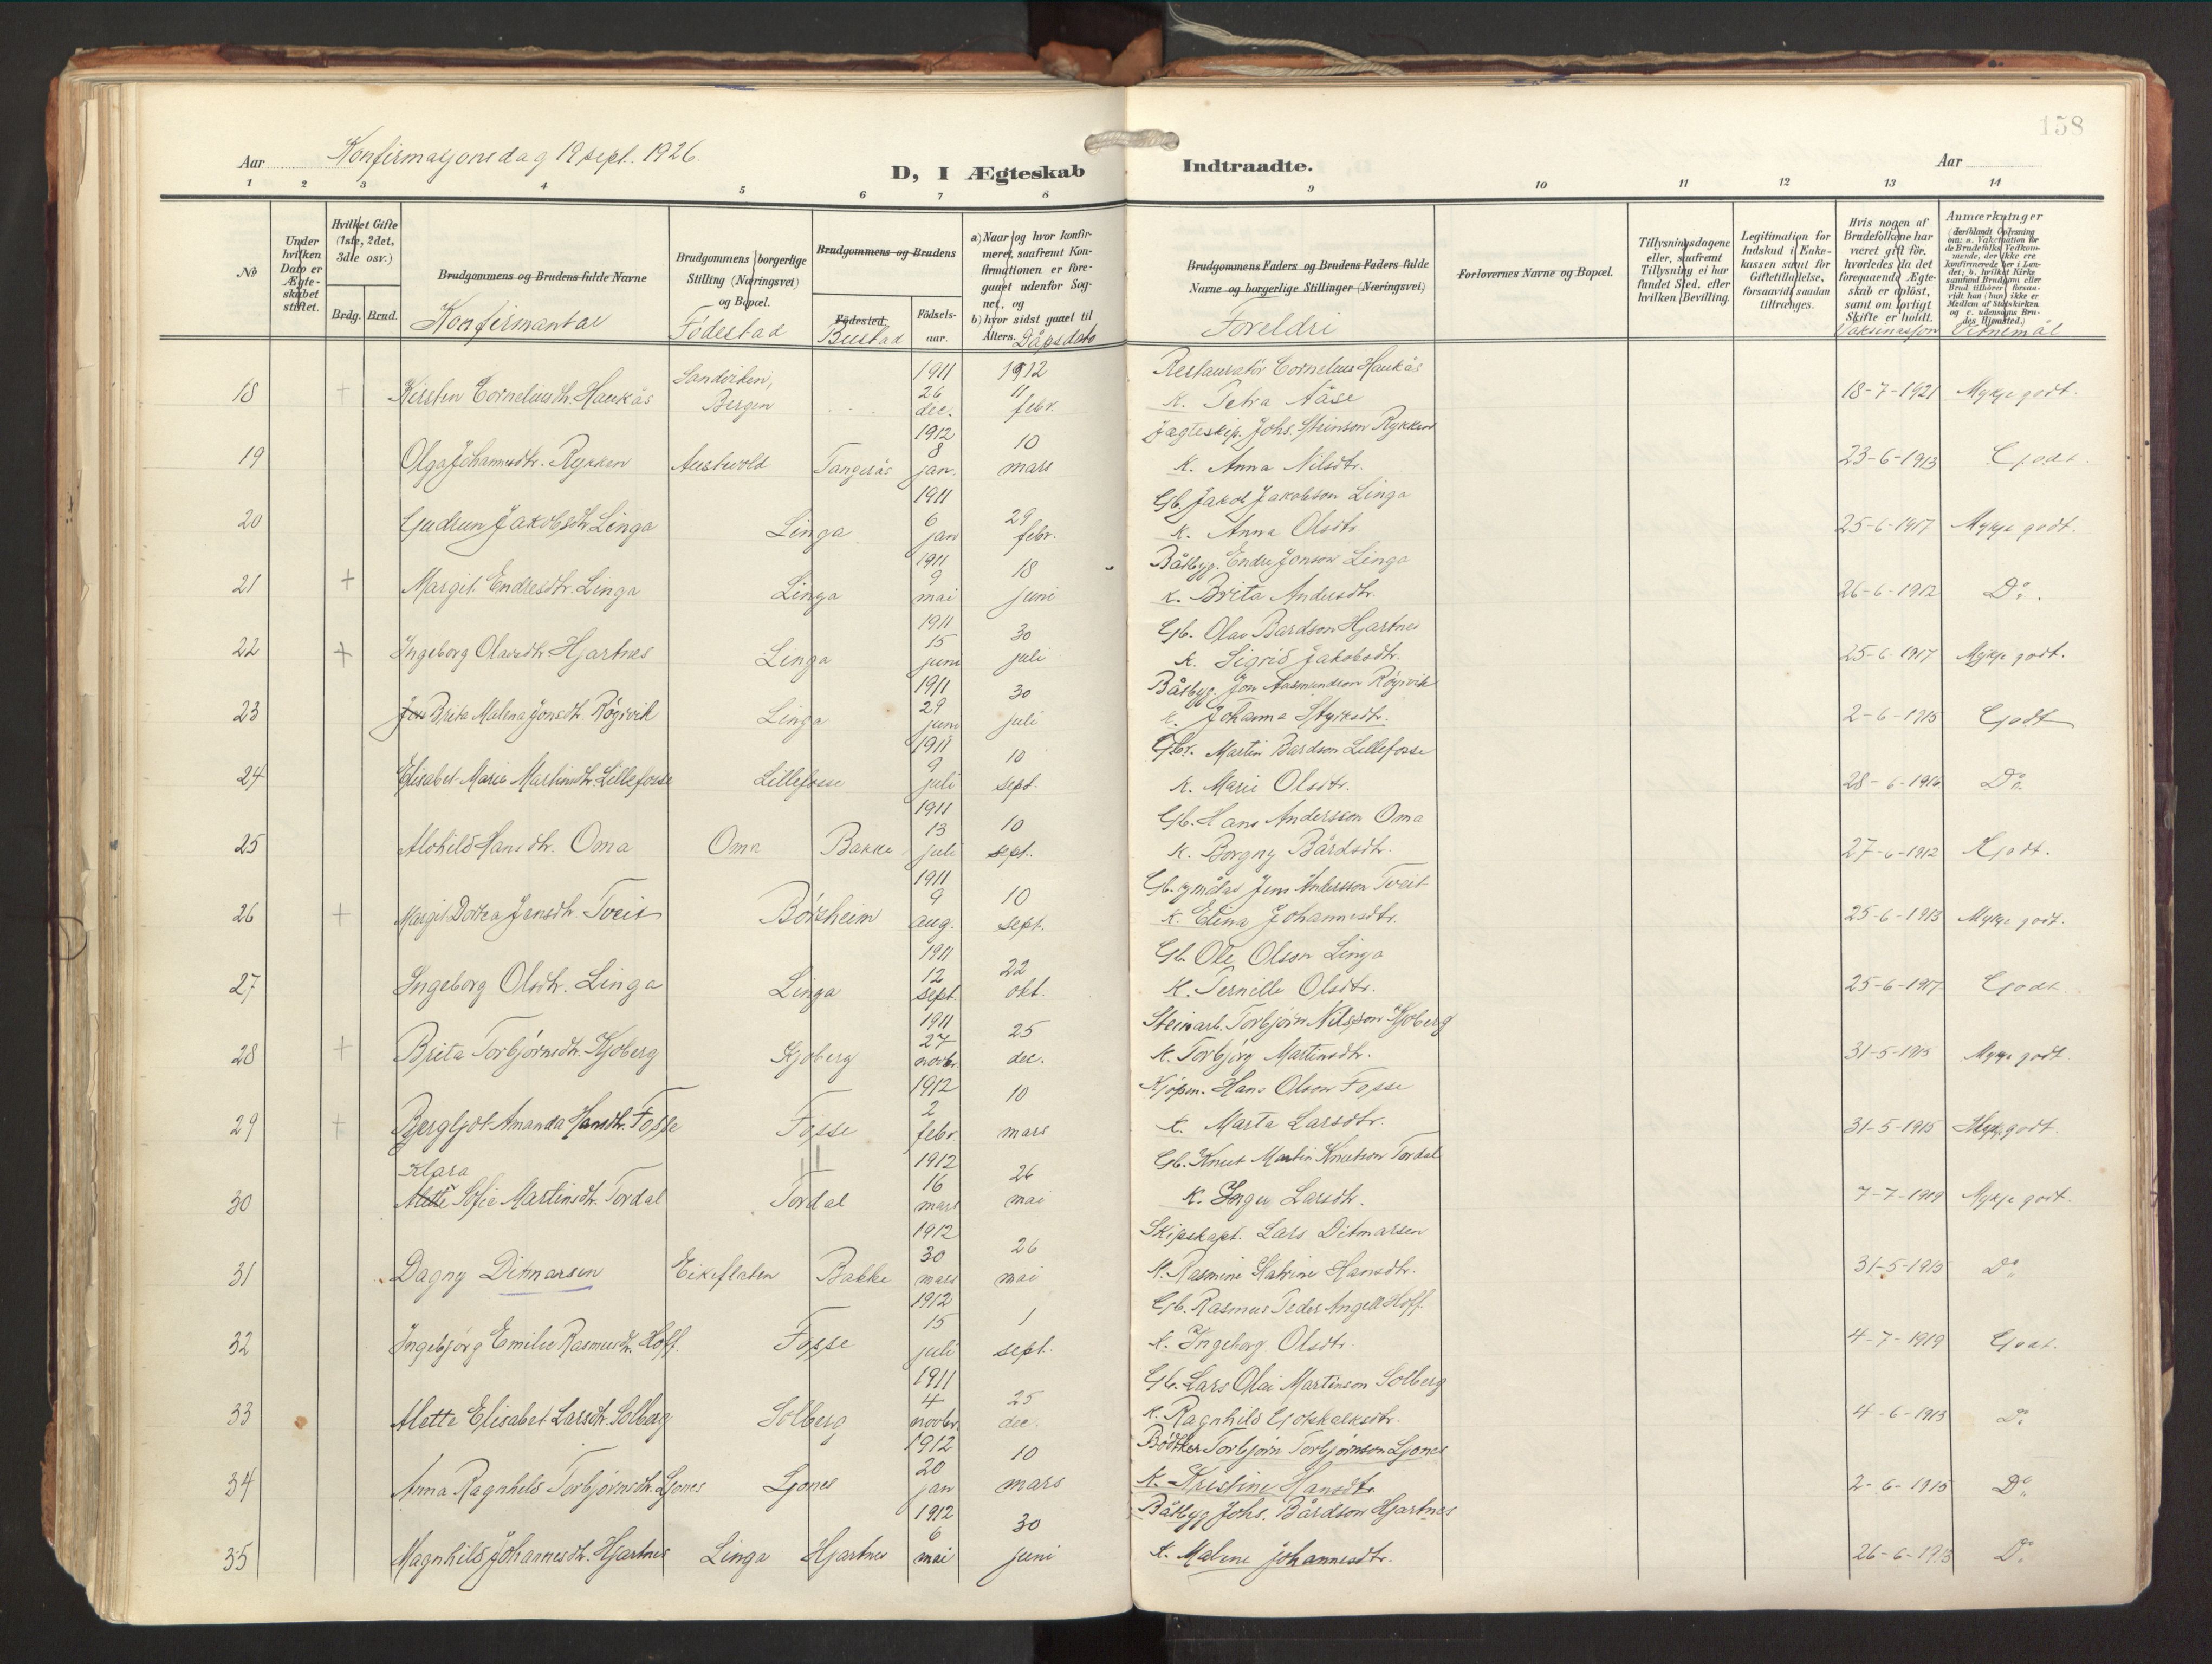 158
Aar
Konfirmasjonsdag 19 sept. 1926.
D, I Ægteskab
Indtraadte.
Aar
1 2 3 4 5 6 7 8 9 10 11 12 13 14
No
Under hvilken Dato er Ægteskabet stiftet.
Hvilket Gifte (1ste, 2det, 3die osv.)
Brdg. Brud.
Brudgommens og Brudens fulde Navne
Konfirmantar
Brudgommens borgerlige Stilling (Næringsvei) og Bopæl.
Födestad
Brudgommens og Brudens
Födested
Bustad
Födselsaar.
a) Naar og hvor konfirmeret, saafremt Konfirmationen er foregaaet udenfor Sognet, og
b) hvor sidst gaaet til Alters.
Dåpsdato
Brudgommens Faders og Brudens Faders fulde Navne og borgerlige Stillinger (Næringsvei)
Foreldri
Forlovernes Navne og Bopæl.
Tillysningsdagene eller, saafremt Tillysning ei har fundet Sted, efter hvilken Bevilling.
Legitimation for Indskud i Enkekassen samt for Giftetilladelse, forsaavidt saadan tiltrænges.
Hvis nogen af Brudefolkene har været gift før, hvorledes da det foregaaende Ægteskab er opløst, samt om lovligt Skifte er holdt.
Vaksinasjon
Anmærkninger
18 + Kirsten Corneliusdtr. Haukås Sandviken, Bergen 1911 26 dec. 1912 11 febr. Restauratör Cornelius Haukås
K. Petra Aåse 18-7-1921 Mykje godt.
19 Olga Johannesdtr. Rykken Austevold Tangerås 1912 8 jan. 10 mars Jægteskip. Johs. Steinson Rykken
K. Anna Nilsdtr. 23-6-1913 Godt.
20 Gudrun Jakobsdtr. Linga Linga 1911 6 jan 29 febr. Gb. Jakob Jakobson Linga
K. Anna Olsdtr 25-6-1917 Mykje godt.
21 + Margit Endresdtr. Linga Linga 1911 9 mai 18 juni Båtbyg. Endre Jonson Linga
K. Brita Andersdtr. 26-6-1912 Do.
22 + Ingeborg Olavsdtr Hjartnes Linga 1911 15 juni 30 juli Gb. Olav Bardson Hjartnes
K. Sigrid Jakobsdtr. 25-6-1917 Mykje godt.
23 Brita Malena Jonsdtr. Röyrvik Linga 1911 29 juni 30 juli Båtbyg. Jon Aasmundson Röyrvik
K. Johanna Styrksdtr. 2-6-1915 Godt
24 Elisabet Marie Martinsdtr. Lillefosse Lillefosse 1911 9 juli 10 sept. Gbr. Martin Bardson Lillefosse
K. Marie Olsdtr. 28-6-1916 Do.
25 Alvhild Hansdtr. Oma Oma Bakke 1911 13 juli 10 sept. Gb. Hans Andersson Oma
K. Borgny Bårdsdtr. 27-6-1912 Godt.
26 + Margit Dortea Jensdtr. Tveit Börsheim 1911 9 aug. 10 sept. Gb. og målar Jens Andersson Tveit
K. Elina Johannesdtr. 25-6-1913 Mykje godt.
27 Ingeborg Olsdtr. Linga Linga 1911 12 sept. 22 okt. Gb. Ole Olsson Linga
K. Pernille Olsdtr. 25-6-1917 Godt.
28 + Brita Torbjörnsdtr. Kjoberg Kjoberg 1911 27 novbr. 25 dec. Steinarb. Torbjörn Nilsson Kjoberg
K. Torbjörg Martinsdtr. 31-5-1915 Mykje godt
29 + Bergljot Amanda Hansdtr. Fosse Fosse 1912 2 febr. 10 mars Kjöpm. Hans Olsson Fosse
K. Marta Larsdtr. 31-5-1915 Mykje godt.
30 Klara Mette Sofie Martinsdtr. Tordal Tordal 1912 16 mars 26 mai Gb. Knut Martin Knutson Tordal
K. Inger Larsdtr. 7-7-1919 Mykje godt.
31 Dagny Ditmarsen Eikeflaten Bakke 1912 30 mars 26 mai Skipskapt. Lars Ditmarsen
K. Rasmine Katrine Hansdtr. 31-5-1915 Do.
32 Ingebjörg Emilie Rasmusdtr. Hoff. Fosse 1912 15 juli 1 sept. Gb. Rasmus Peder Angell Hoff.
K. Ingeborg Olsdtr. 4-7-1919 Godt.
33 Mette Elisabet Larsdtr. Solberg Solberg 1911 4 novbr. 25 dec. Gb. Lars Olai Martinson Solberg
K. Ragnhild Gotskalksdtr. 4-6-1913 Do.
34 Anna Ragnhild Torbjörnsdtr. Ljones Ljones 1912 20 jan 10 mars Bödtker Torbjörn Torbjörnson Ljones
K. Kristine Hansdtr. 2-6-1915 Do.
35 Magnhild Johannesdtr. Hjartnes Linga Hjartnes 1912 6 mai 30 juni Båtbyg Johs. Bårdson Hjartnes
K. Malene Johannesdtr. 26-6-1913 Do.